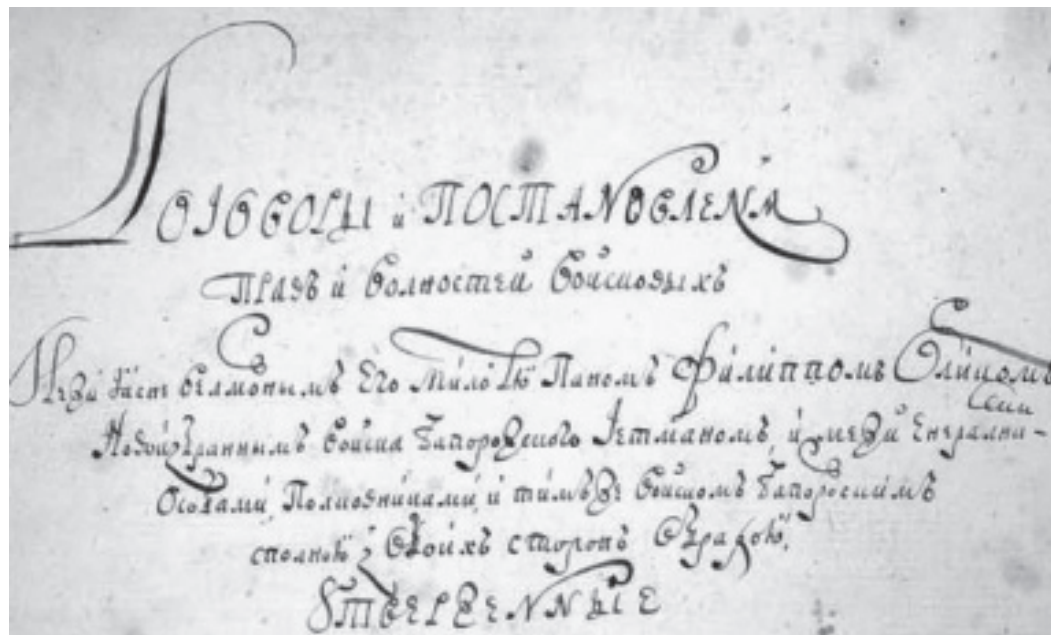 Договоры и ПОСТАНОВЛЕНѦ
Правъ и волностей войсковыхъ
Межи Ясне велможнымъ Его Милостю Паномъ Филиппомъ Орликомъ
Новоизбраннымъ войска Запорожского Гетманомъ, и межи Енерални-
Особами, Полковниками, и тимъ же войскомъ Запорожскимъ
сполною з обоихъ сторонъ обрадою,
УТВЕРЖЕННЫЕ